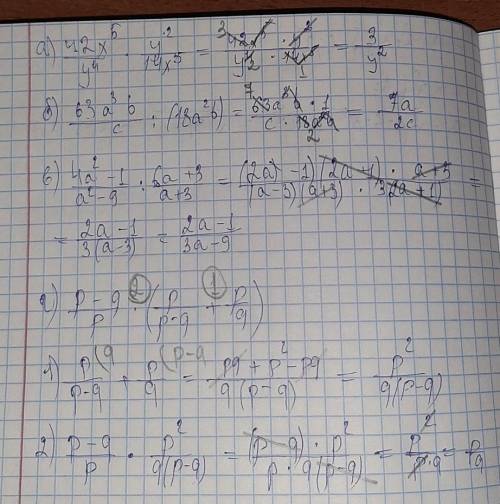 а) 42x⁵/y⁴ · y²/14x⁵ = ³42x⁵ · y²/y⁴² · 14x⁵ 1 = 3/y²
б) 63a³b/c : (18a²b) = ⁷63a³b · 1/c · 18a²b 2 = 7a/2c
в) 4a² - 1/a² - 9 : 6a + 3/a + 3 = (2a - 1)(2a + 1) · a + 3/(a - 3)(a + 3) · 3(2a + 1) =
= 2a - 1/3(a - 3) = 2a - 1/3a - 9
г) p - q/p · (p/p - q + p/q)
1) p/p - q + p/q = pq + p² - pq/q(p - q) = p²/q(p - q)
2) p - q/p · p²/q(p - q) = (p - q) · p²/p · q(p - q) = p²/p · q = p/q